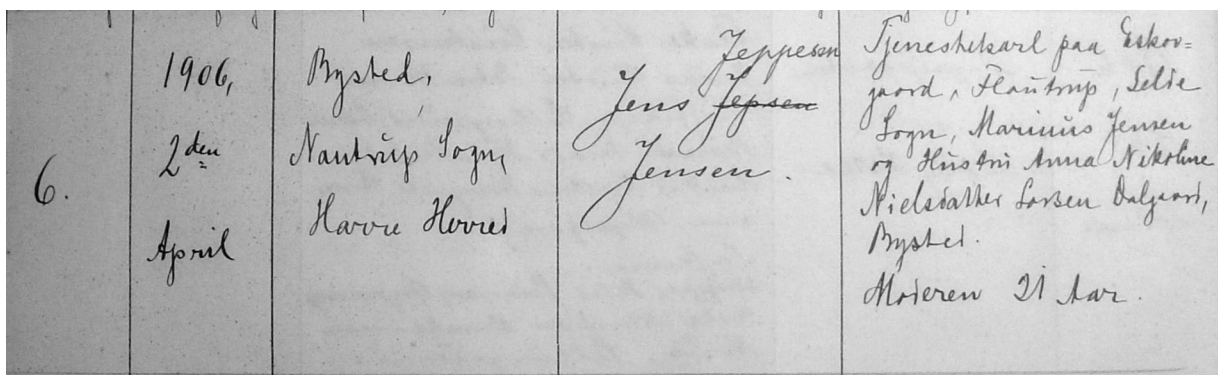 6.
1906,
2den
April
Bysted,
Nautrup Sogn,
Harre Herred
Jeppesen
Jens Jepsen
Jensen.
Tjenestekarl paa Eskov=
gaard, Flautrup, Selde
Sogn, Marinus Jensen
og Hustru Anna Nikoline
Nielsdatter Larsen Dalgaard,
Bysted.
Moderen 21 Aar.